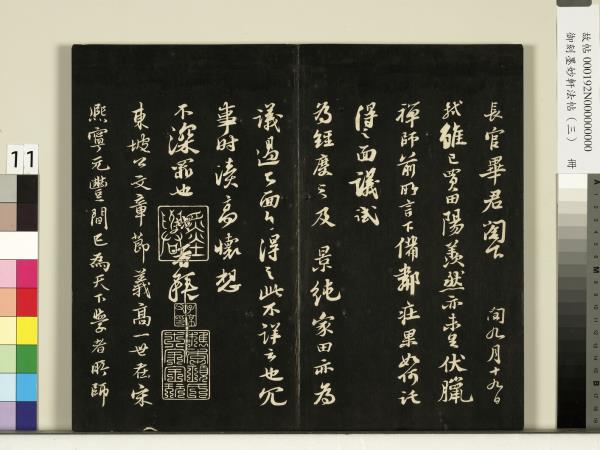 故帖 000192N000000000
御刻墨妙軒法帖(三) 冊
長官畢君閣下 閏九月十九日
軾雖已買田陽羨然亦未足伏臘
禪師前所言下備鄰莊果如何託
得之面議試
為經度之及 景純家田亦為
議過已面白得之此不詳云也冗
事時瀆高懷想
不深罪也
軾拜
東坡公文章節義高一世在宋
熙寧元豐間已為天下學者所師
11